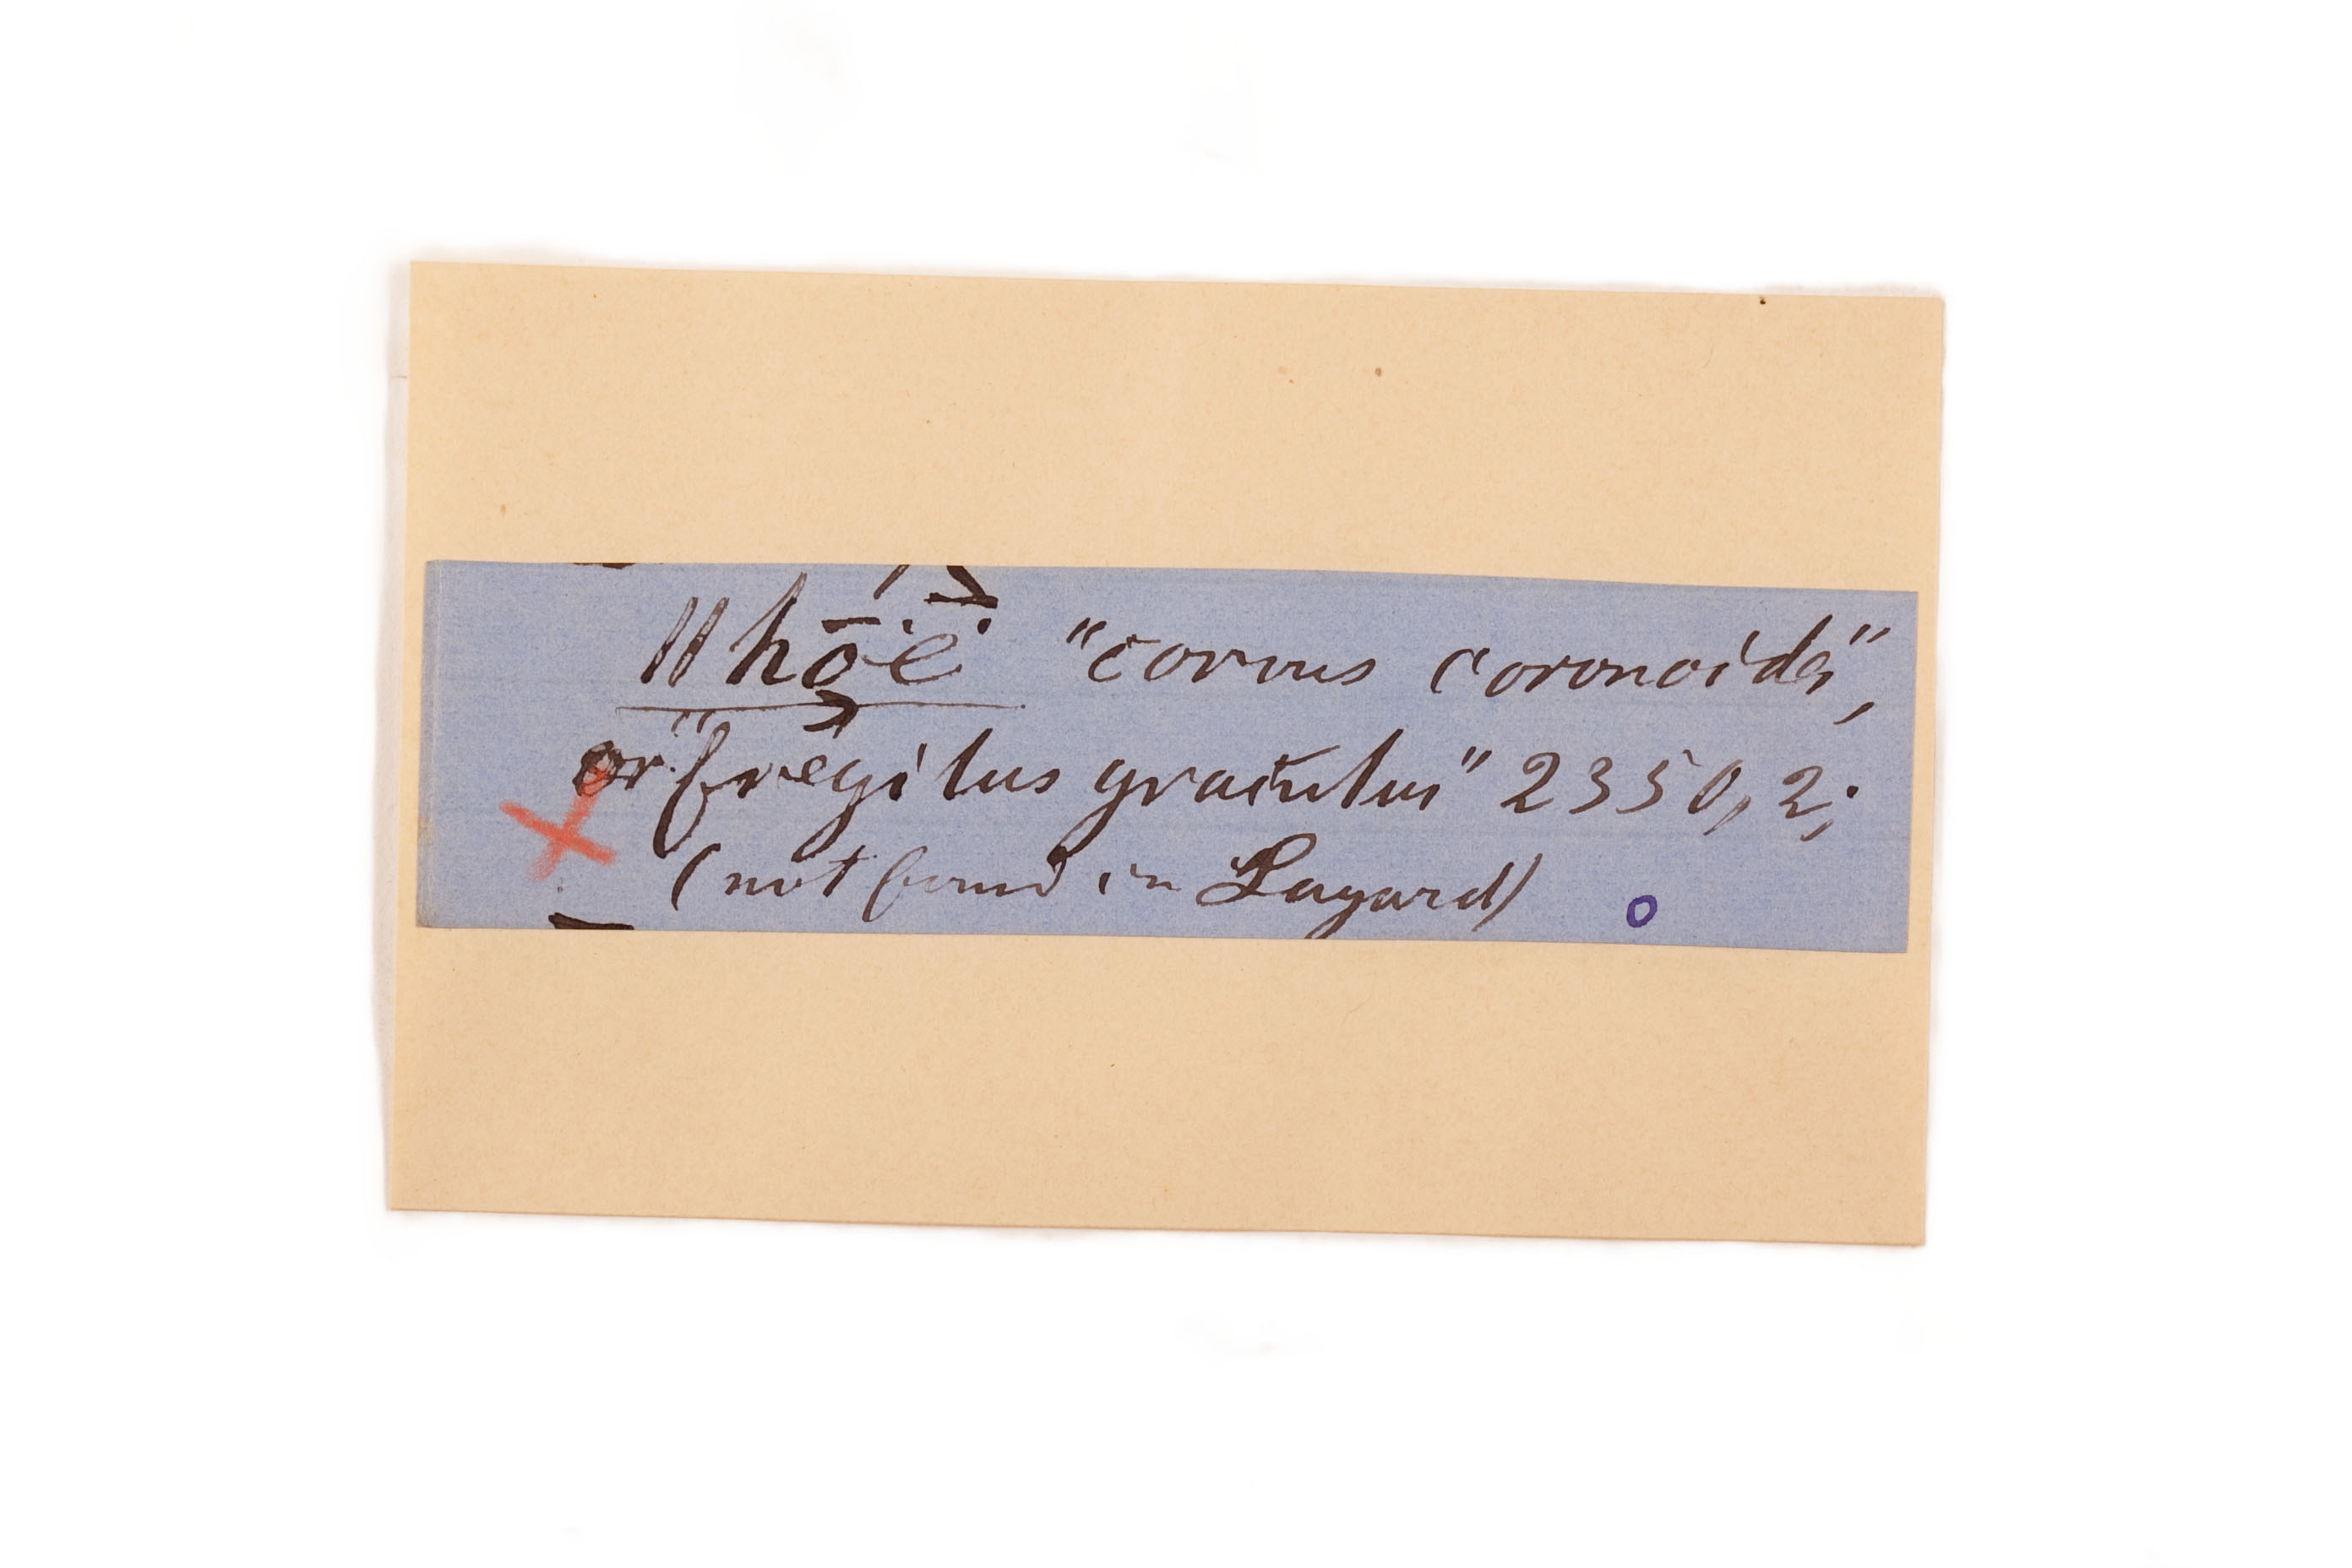 ǁhō̤ë "corvus coronoides",
or "fregilus graculus" 2350, 2;
(not found in Layard)